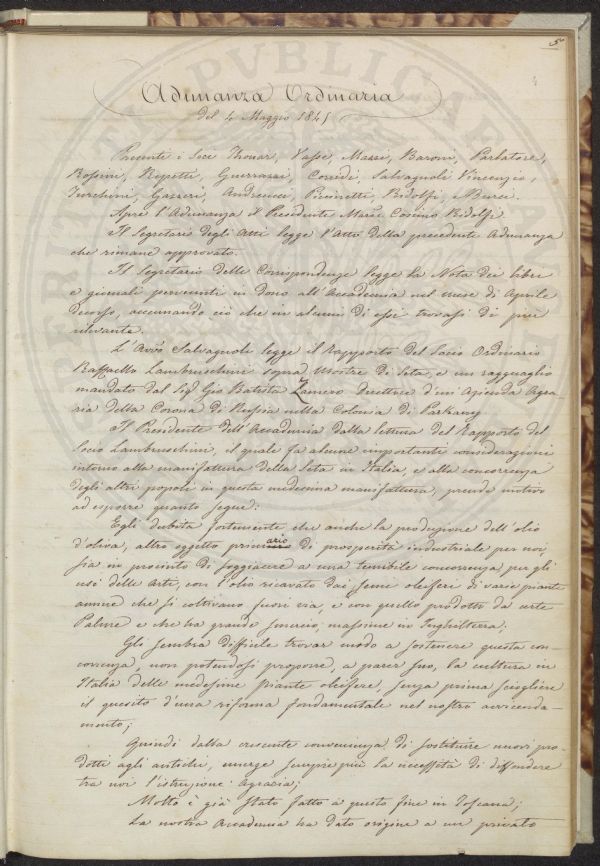 5
Adunanza Ordinaria
del 4 Maggio 1845
Presenti i Soci Thouar, Vasse, Mazzi, Baroni, Parlatore,
Rossini, Repetti, Guerrazzi, Corridi, Salvagnoli Vincenzio,
Turchini, Gazzeri, Andreucci, Ridolfi,
Apre l'Adunanza il Presidente March. Cosimo Ridolfi
Il Segretario degli Atti legge l'Atto della precedente Adunanza
che rimane approvato.
Il Segretario delle Corrispondenze legge la Nota dei libri
e giornali pervenuti in dono all'Accademia nel mese di Aprile
decorso, accennando ciò che in alcuni di essi trovasi di più
rilevante.
L'Avvo Salvagnoli legge il Rapporto del Socio Ordinario
Raffaello Lambruschini sopra Mostre di Seta, e un ragguaglio
mandato dal Sigr Gio Batista Direttore d'un'Azienda Agra-
ria della Corona di Russia nella Colonia di
Il Presidente dell'Accademia dalla lettura del Rapporto del
Socio Lambruschini, il quale fa alcune importanti considerazioni
intorno alla manifattura della Seta in Italia, e alla concorrenza
degli altri popoli in questa medesima manifattura, prende motivo
ad esporre quanto segue:
Egli dubita fortemente che anche la produzione dell'olio
d'oliva, altro oggetto primario di prosperità industriale per noi,
sia in procinto di soggiacere a una temibile concorrenza per gli
usi delle arti, con l'olio ricavato dai semi oleiferi di varie piante
annue che si coltivano fuori via, e con quello prodotto da certe
Palme e che ha grande smercio, massime in Inghilterra;
Gli sembra difficile trovar modo a sostenere questa con-
correnza, non potendosi proporre, a parer suo, la cultura in
Italia delle medesime piante oleifere, senza prima sciogliere
il quesito d'una riforma fondamentale nel nostro avvicenda-
mento;
Quindi dalla crescente convenienza di sostituire nuovi pro-
dotti agli antichi, emerge sempre più la necessità di diffondere
tra noi l'istruzione Agraria;
Molto è già stato fatto a questo fine in Toscana;
La nostra Accademia ha dato origine a un privato